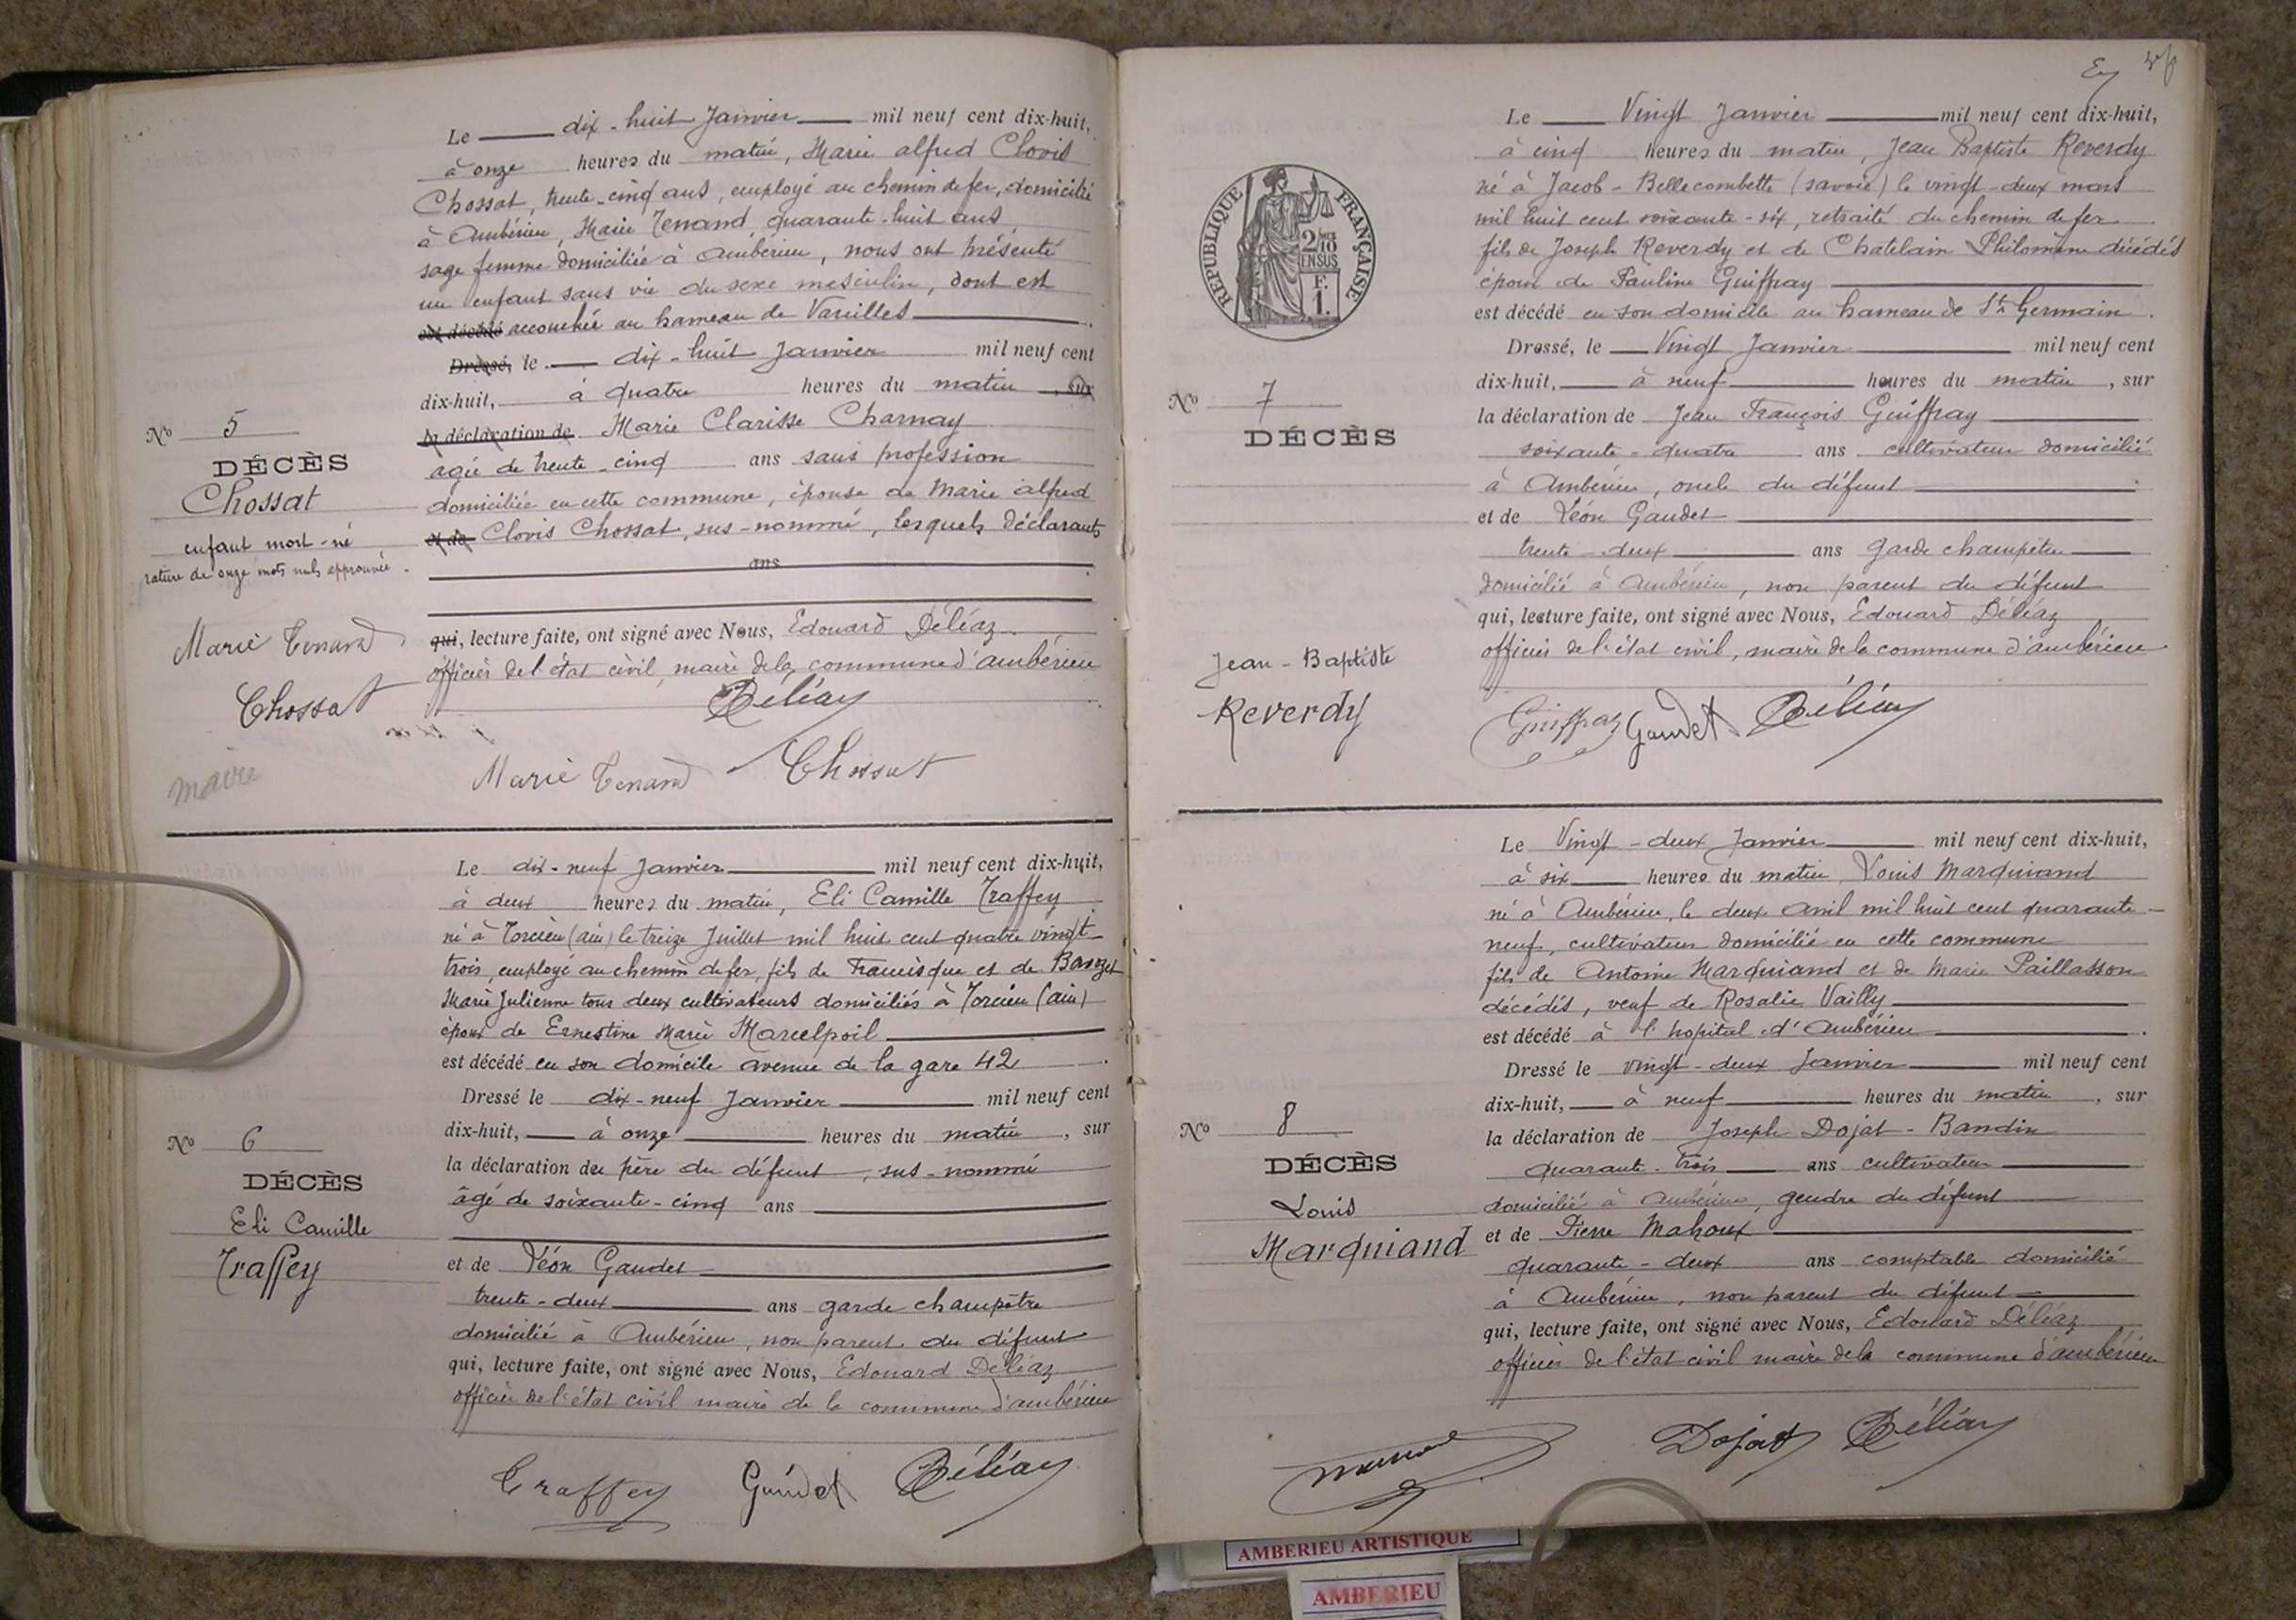 Le dix-huit Janvier mil neuf cent dix-huit,
à onze heures du matin, Marie alfred Clovis
Chossat, trente-cinq ans, employé au chemin de fer, domicilié
à Ambérieu, Marie Tenand, quarante-huit ans
sage femme domiciliée à Ambérieu, nous ont présenté
un enfant sans vie du sexe masculin, dont est
est décédé accouchée au hameau de Vareilles
Dressé, le dix-huit Janvier mil neuf cent
dix-huit, à quatre heures du matin, sur
la déclaration de Marie Clarisse Charnay
agée de trente-cinq ans sans profession
domiciliée en cette commune, épouse de Marie alfred
et de Clovis Chossat, sus-nommé, lesquels déclarants
ans
qui, lecture faite, ont signé avec Nous, Edouard Déléaz
officier de l'état civil, maire de la commune d'ambérieu
Déléaz
Marie Tenand Chossat
No 5
DÉCÈS
Chossat
enfant mort-né
rature de onze mots nuls approuvée.
Marie Tenand
Chossat
maire
Le dix-neuf Janvier mil neuf cent dix-huit,
à deux heures du matin, Eli Camille Traffey
né à Torcieu (ain) le treize Juillet mil huit cent quatre vingt
trois, employé au chemin de fer, fils de Francisque et de
Marie Julienne tous deux cultivateurs domiciliés à Torcieu (ain)
époux de Ernestine Marie Marcelpoil
est décédé en son domicile avenue de la gare 42
Dressé le dix-neuf Janvier mil neuf cent
dix-huit, à onze heures du matin, sur
la déclaration du père du défunt, sus-nommé
âgé de soixante-cinq ans
et de Léon Gaudet
trente-deux ans garde champêtre
domicilié à Ambérieu, non parent du défunt
qui, lecture faite, ont signé avec Nous, Edouard Déléaz
officier de l'état civil maire de la commune d'ambérieu
Traffey Gaudet Déléaz
No 6
DÉCÈS
Eli Camille
Traffey
Le Vingt Janvier mil neuf cent dix-huit,
à cinq heures du matin, Jean Baptiste Reverdy
né à Jacob-Bellecombette (savoie) le vingt-deux mars
mil huit cent soixante-six, retraité du chemin de fer
fils de Joseph Reverdy et de Chatelain Philomène décédés
époux de Pauline Guiffray
est décédé en son domicile au hameau de St Germain.
Dressé, le Vingt Janvier mil neuf cent
dix-huit, à neuf heures du matin, sur
la déclaration de Jean François Guiffray
soixante-quatre ans cultivateur domicilié
à Ambérieu, oncle du défunt
et de Léon Gaudet
trente-deux ans garde champêtre
domicilié à Ambérieu, non parent du défunt
qui, lecture faite, ont signé avec Nous, Edouard Déléaz
officier de l'état civil, maire de la commune d'ambérieu
Guiffray Gaudet Déléaz
RÉPUBLIQUE FRANÇAISE
2/10
EN SUS
F.
1.
No 7
DÉCÈS
Jean-Baptiste
Reverdy
Le Vingt-deux Janvier mil neuf cent dix-huit,
à six heures du matin, Louis Marquiand
né à Ambérieu, le deux avril mil huit cent quarante-
neuf, cultivateur domicilié en cette commune
fils de Antoine Marquiand et de Marie Paillasson
décédés, veuf de Rosalie Vailly
est décédé à l'hopital d'Ambérieu
Dressé le vingt-deux Janvier mil neuf cent
dix-huit, à neuf heures du matin, sur
la déclaration de Joseph Dojat-Bandin
quarante-trois ans cultivateur
domicilié à Ambérieu, gendre du défunt
et de Pierre Mahoux
quarante-deux ans comptable domicilié
à Ambérieu, non parent du défunt
qui, lecture faite, ont signé avec Nous, Edouard Déléaz
officier de l'état civil maire de la commune d'ambérieu
Dojat Déléaz
No 8
DÉCÈS
Louis
Marquiand
AMBERIEU ARTISTIQUE
AMBERIEU